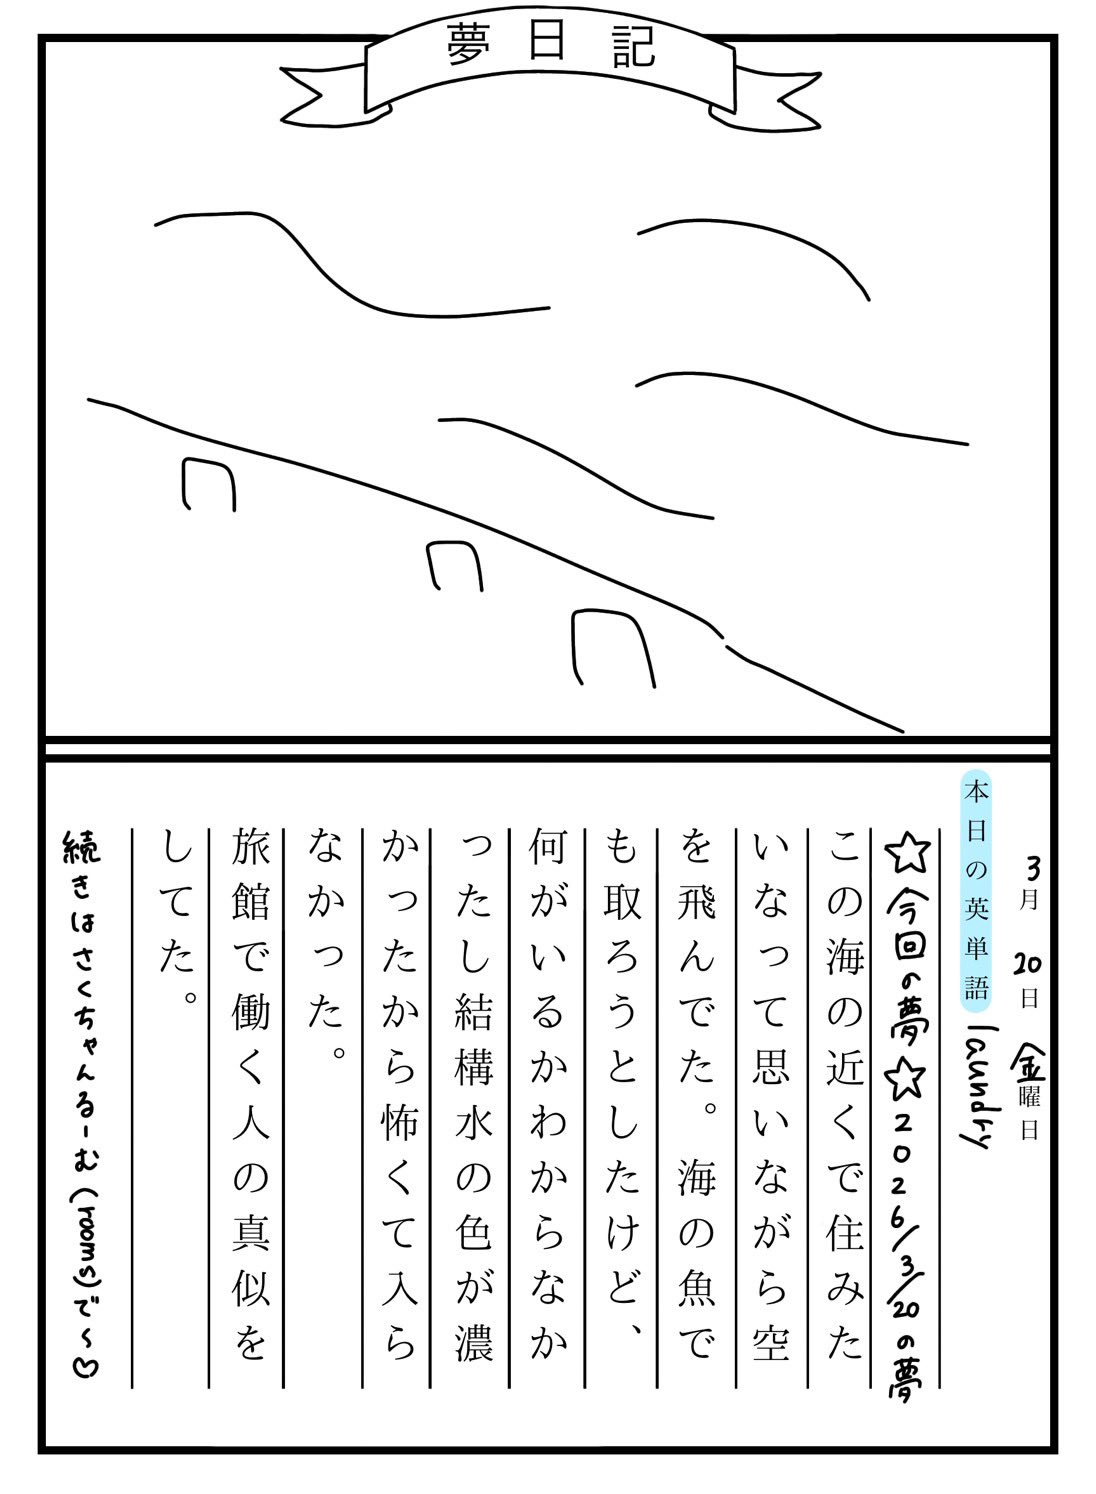 夢日記
3月20日金曜日
本日の英単語 laundry
☆今回の夢☆2026/3/20の夢
この海の近くで住みた
いなって思いながら空
を飛んでた。海の魚で
も取ろうとしたけど、
何がいるかわからなか
ったし結構水の色が濃
かったから怖くて入ら
なかった。
旅館で働く人の真似を
してた。
続きはさくちゃんるーむ(rooms)で~♡